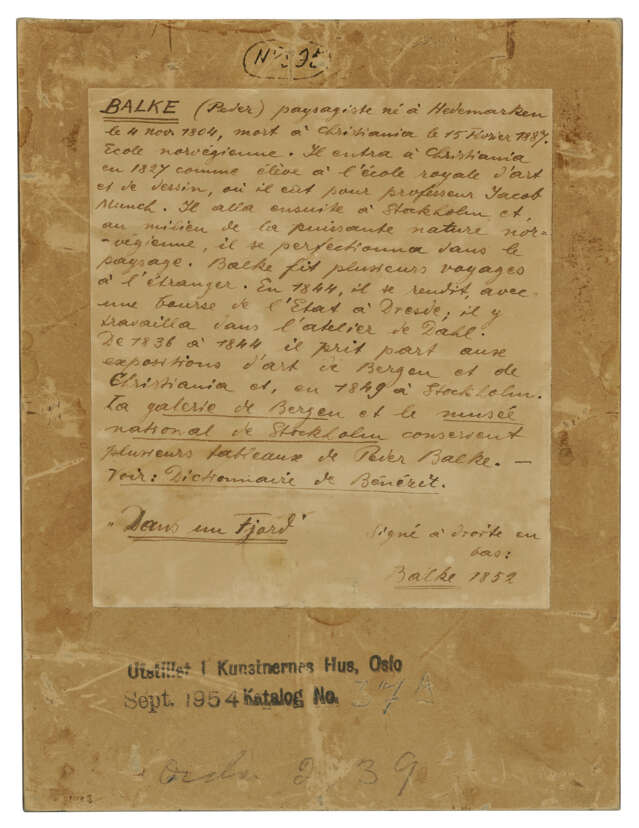 BALKE (Peder) paysagiste né à Hedemarken
le 4 nov 1804, mort à Christiania le 15 Février 1887.
École norvégienne. Il entra à Christiania
en 1827 comme élève à l'école royale d'art
et de dessin, où il eut pour professeur Jacob
Munch. Il alla ensuite à Stockholm et,
au milieu de la puissante nature nor-
-végienne, il se perfectionna dans le
paysage. Balke fit plusieurs voyages
à l'étranger. En 1844, il se rendit, avec
une bourse de l'Etat à Dresde; il y
travailla dans l'atelier de Dahl.
De 1836 à 1844 il prit part aux
expositions d'art de Bergen et de
Christiania et, en 1849 à Stockholm.
La galerie de Bergen et le musée
national de Stockholm conservent
plusieurs tableaux de Peder Balke. —
Voir: Dictionnaire de Bénézit.
"Dans un Fjord"
Signé à droite en
bas:
Balke 1852
Utstillet i Kunstnernes Hus, Oslo
Sept. 1954 Katalog No. 37 A
2 39